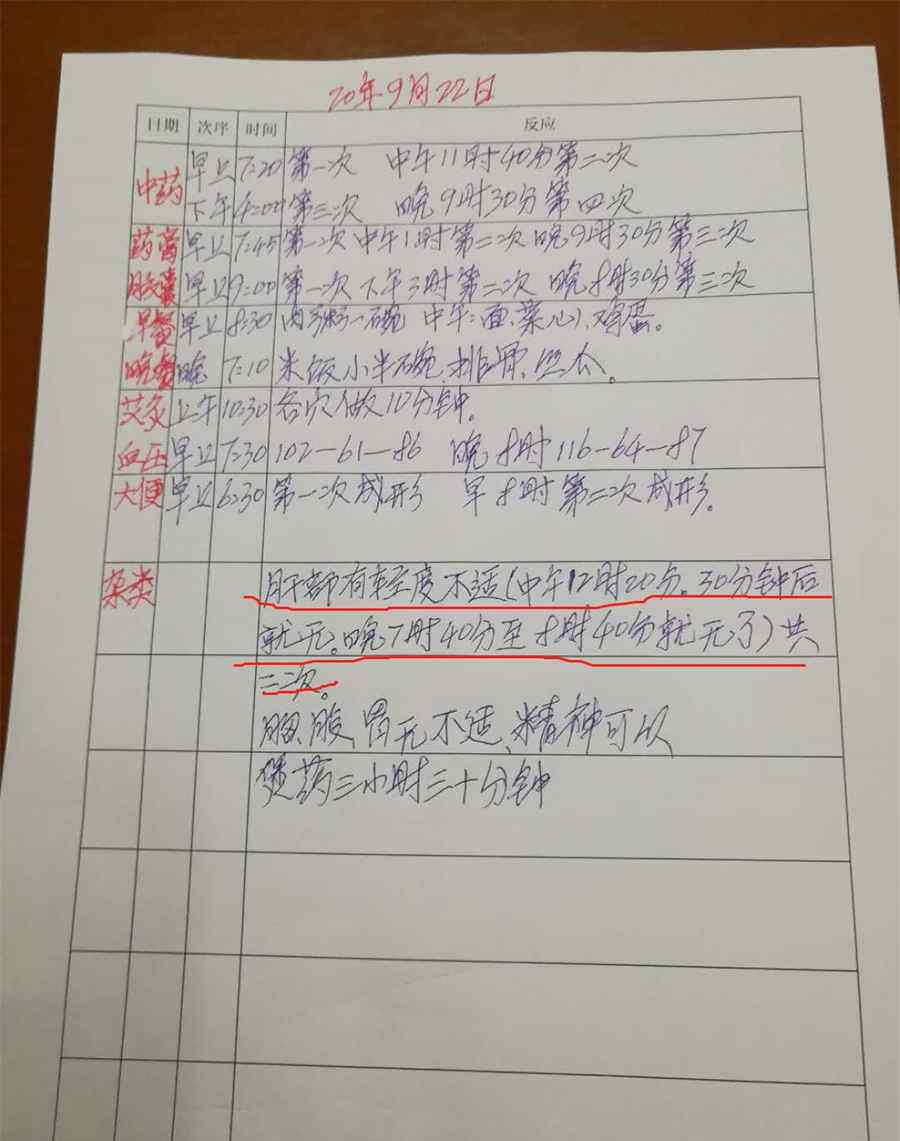 20年9月22日
日期 次序 时间 反应
中药 早上 7:20 第一次 中午11时40分第二次
下午 4:00 第三次 晚9时30分第四次
药膏 早上 7:45 第一次 中午1时第二次 晚9时30分第三次
胶囊 早上 9:00 第一次 下午3时第二次 晚8时30分第三次
早餐 早上 8:30 肉粥一碗 中午:面、菜心、鸡蛋。
晚餐 晚 7:10 米饭小半碗、排骨、丝瓜。
艾灸 上午 10:30 各穴做10分钟。
血压 早上 7:30 102-61-86 晚8时116-64-87
大便 早上 6:30 第一次成形 早8时第二次成形。
杂类 肝部有轻度不适(中午12时20分。30分钟后
就无。晚7时40分至8时40分就无了)共
二次。
胸、腹、胃无不适、精神可以
煲药三小时三十分钟